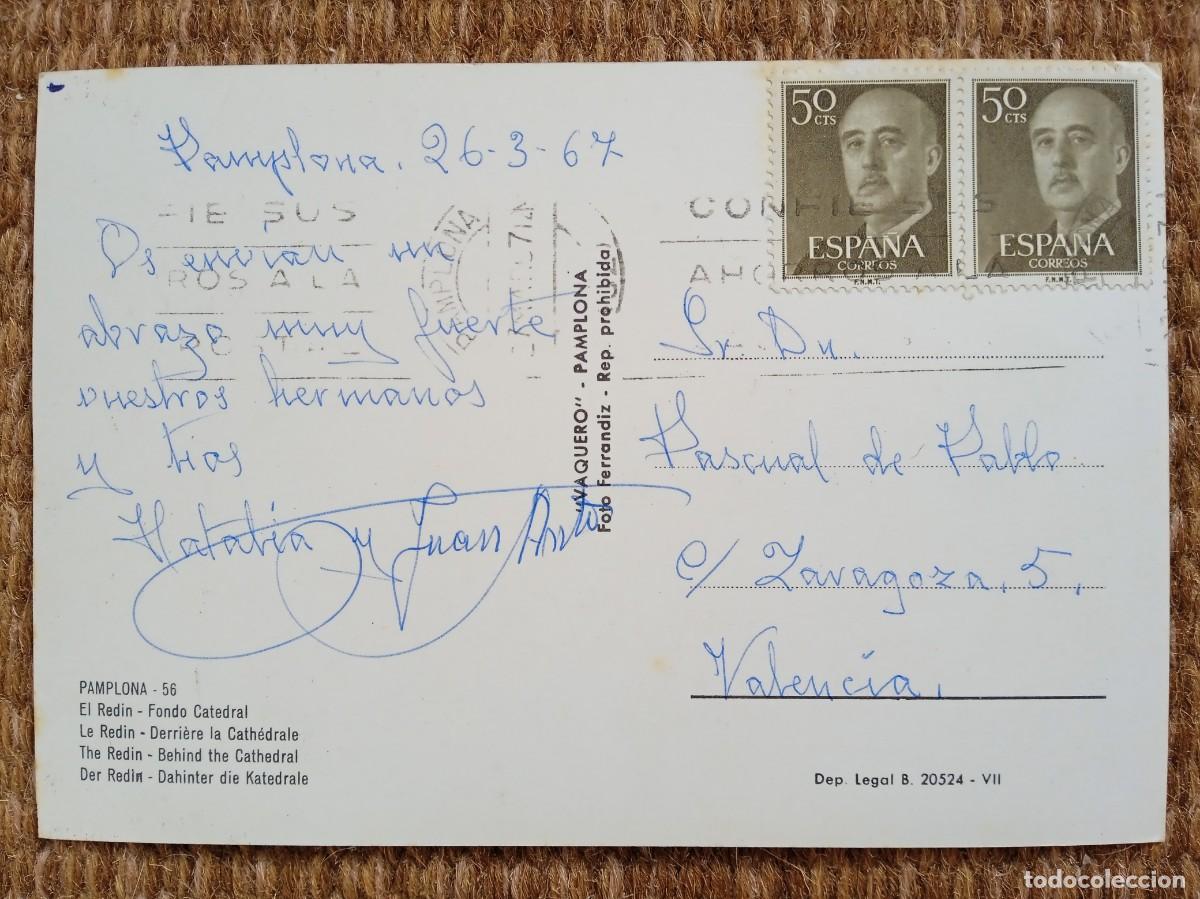 Pamplona. 26-3-67
Os envian un
abrazo muy fuerte
vuestros hermanos
y tios
Natalia y Juan Anto
50 CTS
ESPAÑA
CORREOS
F.N.M.T.
50 CTS
ESPAÑA
CORREOS
F.N.M.T.
FIE SUS
ROS A LA
PAMPLONA
CONFIE SUS
AHORROS A LA
"VAQUERO" - PAMPLONA
Foto Ferrandiz - Rep. prohibida)
Sr. Dn.
Pascual de Pablo
c/ Zaragoza, 5,
Valencia.
PAMPLONA - 56
El Redin - Fondo Catedral
Le Redin - Derrière la Cathédrale
The Redin - Behind the Cathedral
Der Redin - Dahinter die Katedrale
Dep. Legal B. 20524 - VII
todocoleccion